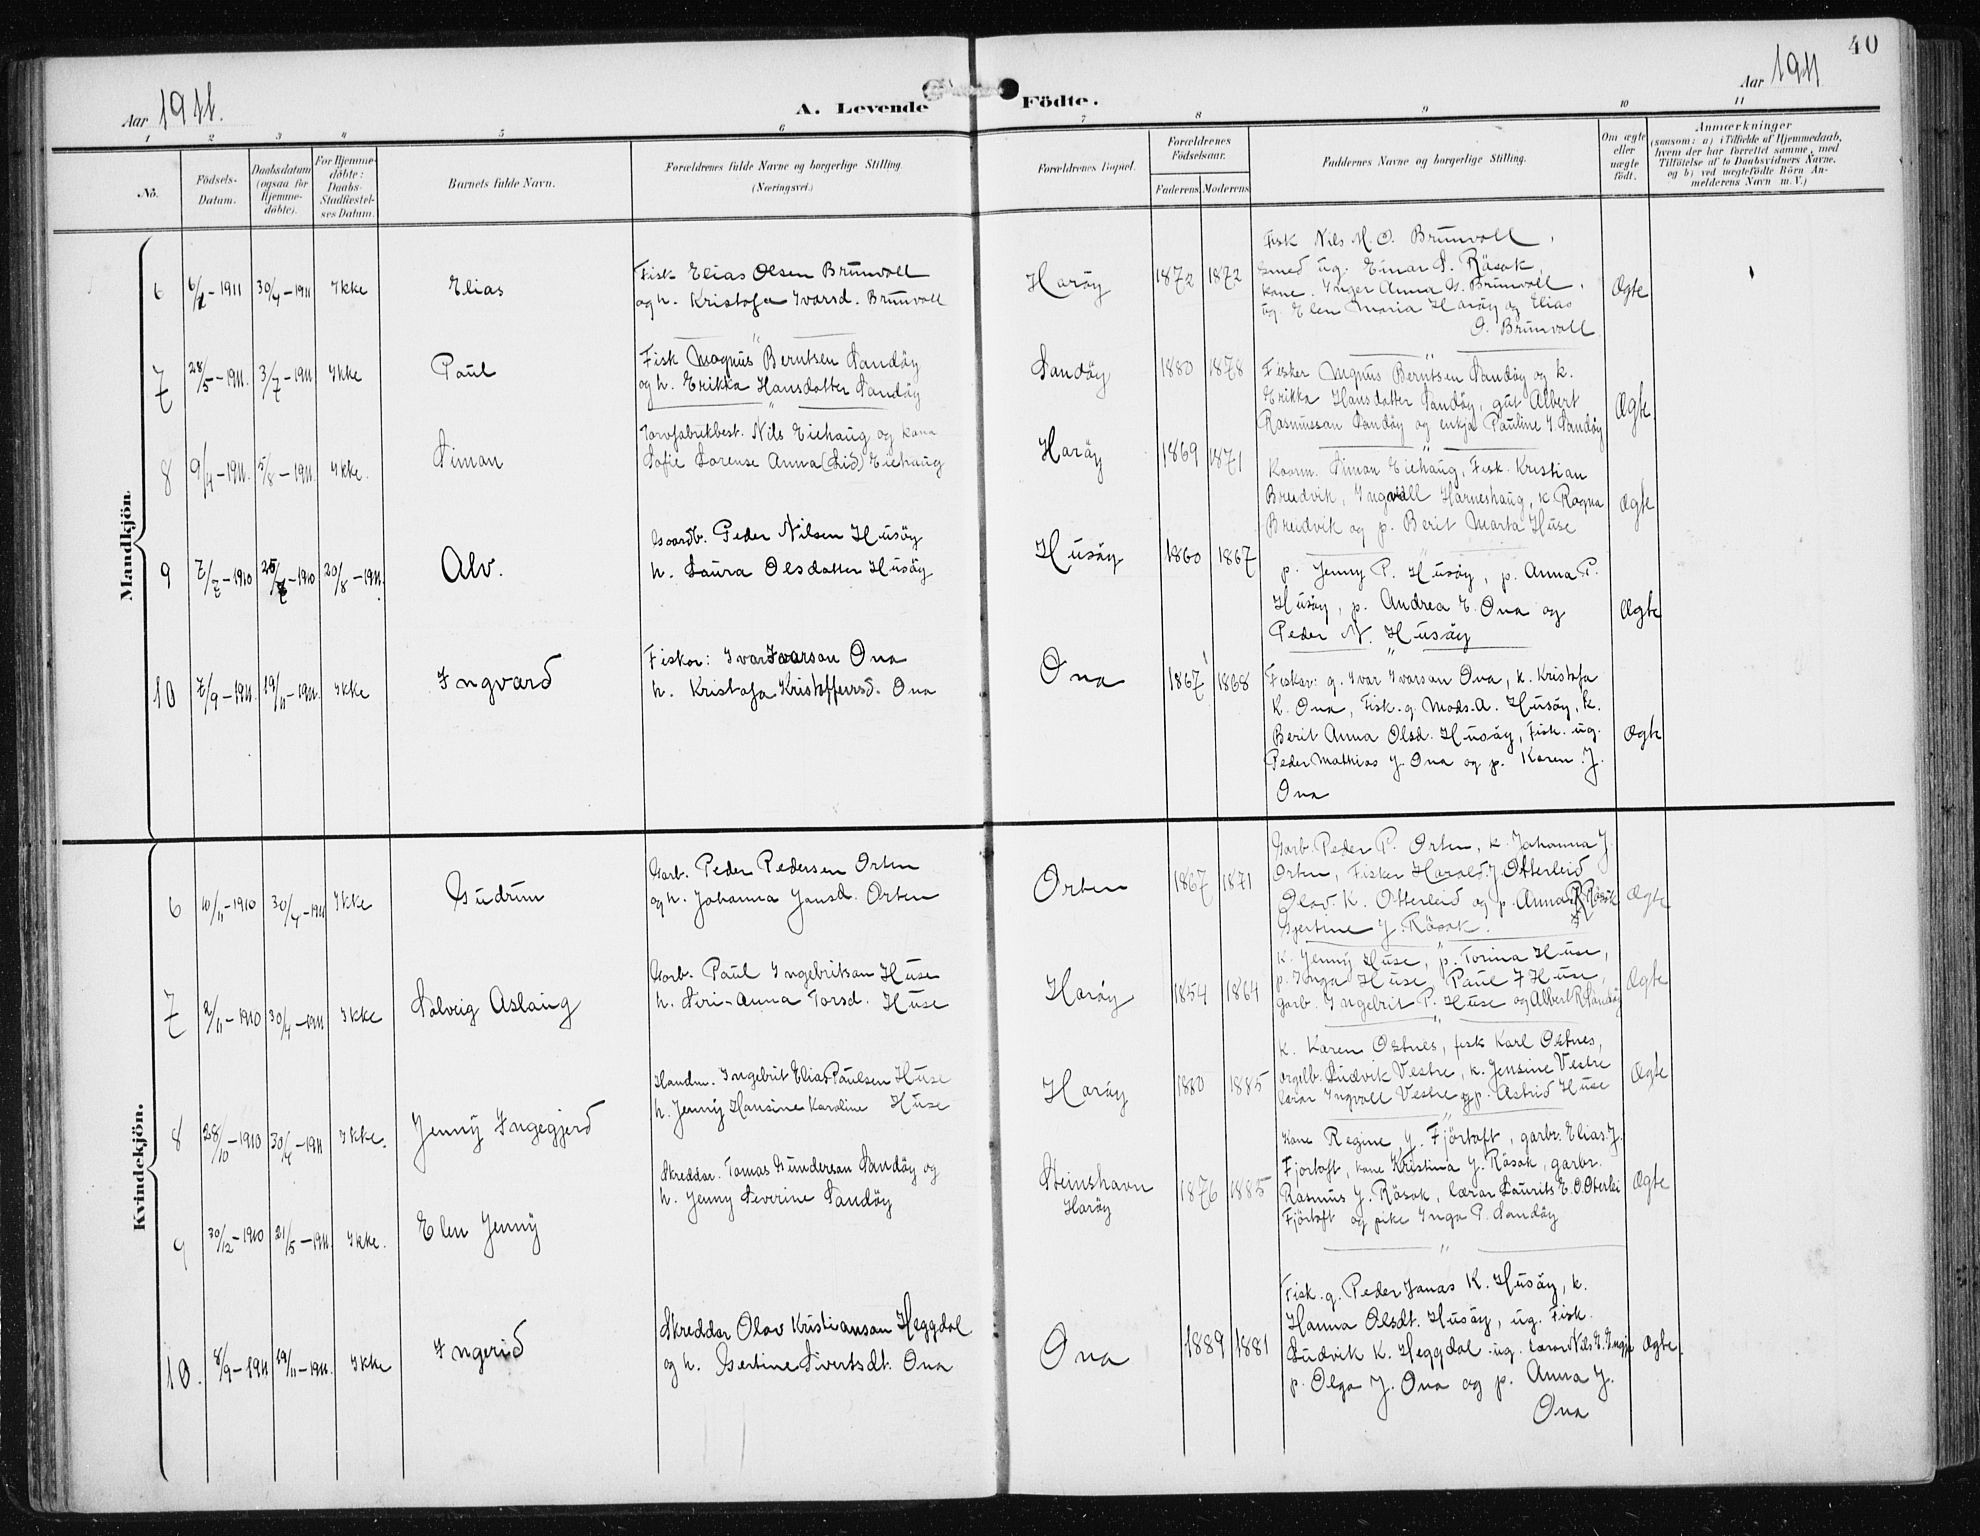 40
Aar 1911.
A. Levende Födte.
Aar 1911
1 2 3 4 5 6 7 8 9 10 11
No.
Födsels-
Datum.
Daabsdatum
(ogsaa for
Hjemme-
döbte).
For Hjemme-
döbte:
Daabs-
Stadfæstel-
ses Datum.
Barnets fulde Navn.
Forældrenes fulde Navne og borgerlige Stilling.
(Næringsvei.)
Forældrenes Bopæl.
Forældrenes
Födselsaar.
Faderens. Moderens.
Faddernes Navne og borgerlige Stilling.
Om ægte
eller
uægte
født.
Anmærkninger
(saasom: a) i Tilfælde af Hjemmedaab,
hvem der har forrettet samme, med
Tilföielse af to Daabsvidners Navne,
og b) ved uægtefödte Börn An-
melderens Navn m. V.)
Mandkjön.
6 30/4-1911 Ikke Elias
Fisk Elias Olsen Brunvoll
og h. Kristofa Ivarsd. Brunvoll
Haröy 1872 1872
Fisk Nils M. O. Brunvoll,
smed ug. Einar S. Räsok,
kone Inger Anna G. Brunvoll,
ug. Elen Maria Haröy og Elias
O. Brunvoll
Ægte
7 28/5-1911. 3/7-1911 Ikke Paul
Fisk Magnus Berntsen Sandöy
og h. Erikka Hansdatter Sandöy
Sandöy 1880 1878
Fisker Magnus Berntsen Sandöy og k.
Erikka Hansdatter Sandöy, gut Albert
Rasmussan Sandöy og enkja Pauline I. Sandöy
Ægte
8 9/4-1911. 5/8-1911. Ikke. Simon
Torvfabrikbest. Nils Eiehaug og kona
Sofie Lorense Anna (Lid) Eiehaug
Haröy 1869 1871
Simon Eiehaug, Fisk. Kristian
Breidvik, Ingvall Harneshaug, k Ragna
Breidvik og p. Berit Marta Huse
Ægte
9 7/7-1910 20/8-1911. Alv.
Gaardb. Peder Nilsen Husöy
h. Laura Olsdatter Husöy
Husöy 1860 1867
p. Jenny P. Husöy, p. Anna P.
Husöy, p. Andrea E. Ona og
Peder N. Husöy
Ægte
10 7/9-1911. 19/11-1911. Ikke Ingvard
Fiskar: Ivar Ivarson Ona
h. Kristofa Kristoffersd. Ona
Ona 1867 1868
Fiskar g. Ivar Ivarson Ona, k. Kristofa
K. Ona, Fisk. g. Mads. A. Husöy, k.
Berit Anna Olsd. Husöy, Fisk. ug.
Peder Mathias J. Ona og p. Karen J.
Ona
Ægte
Kvindekjön.
6 10/11-1910 30/4-1911 Ikke Gudrun
Garb. Peder Pedersen Orten
og h. Johanna Jansd. Orten
Orten 1867 1871
Garb. Peder P. Orten, k. Johanna J.
Orten, Fisker Harald J. Otterleid
Olav. K. Otterleid og p. Anna R Räsok
Gjertine J. Räsok.
Ægte
7 2/11-1910 30/4-1911 Ikke Solveig Aslaug
Garb. Paul Ingebritson Huse
h. Siri-Anna Torsd. Huse
Haröy 1854 1864
k. Jenny Huse, p. Torina Huse,
p. Inga Huse, Paul I Huse,
garb. Ingebrit P. Huse og Albert R Sandöy
Ægte
8 28/10-1910 30/4-1911 Ikke. Jenny Ingegjerd
Handm. Ingebrit Elias Paulsen Huse
h. Jenny Hansine Karoline Huse
Haröy 1880 1885
k. Karen Ostnes, fisk Karl Ostnes,
orgelb. Ludvik Vestre, k. Jensine Vestre
lærar Ingvall Vestre og p. Astrid Huse
Ægte
9 30/12-1910 21/5-1911. Ikke. Elen Jenny
Skreddar. Tomas Gunderson Sandöy og
h. Jenny Severine Sandöy
Steinshavn
Haröy
1876 1885
Kone Regine J. Fjörtoft, garbr. Elias J.
Fjortoft, kone Kristina J. Räsok, garbr.
Rasmus J. Räsok, lærar Laurits E. O. Oterlei
Fjörtoft og pike Inga P. Sandöy
Ægte
10. 8/9-1911 19/11-1911. Ikke Ingerid
Skreddar Olav Kristianson Heggdal
og h. Gjertine Sivertsdt. Ona
Ona 1889 1881
Fisk. g. Peder Jonas K. Husöy, k.
Hanna Olsdt. Husöy, ug. Fisk.
Ludvik K. Heggdal ug. lærar Nils
p. Olga J. Ona og p. Anna J.
Ona
Ægte.